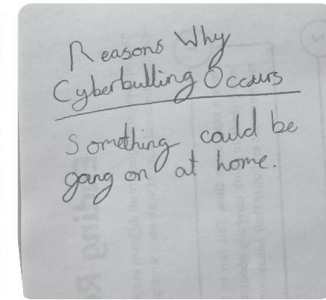 Reasons Why
Cyberbulling Occurs
Something could be
going on at home.